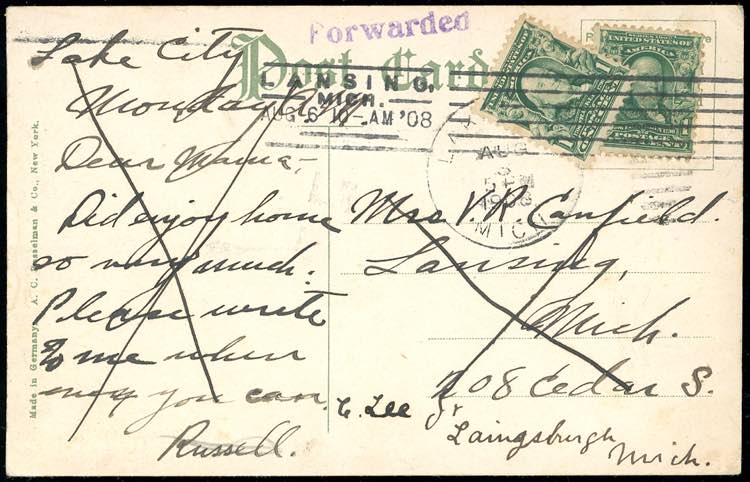 Forwarded
Post Card
LANSING,
MICH.
AUG 6 10-AM '08
AUG
3
5 PM
1908
MICH
UNITED STATES OF
POSTAGE
Lake City
Monday
Dear Mama—
Did enjoy home
so very much.
Please write
to me when
you can.
Russell.
Mrs. V. R. Canfield.
Lansing,
Mich.
208 Cedar S.
C. Lee Jr
Laingsburgh
Mich.
Made in Germany. A. C. Bosselman & Co., New York.